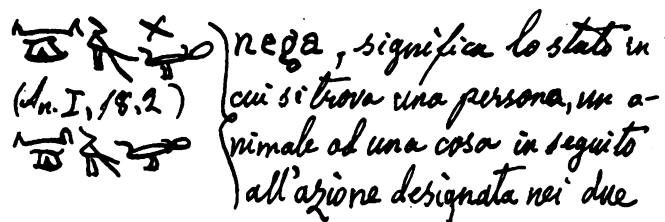 nega, significa lo stato in
(An. I, 18, 2) cui si trova una persona, un a-
nimale od una cosa in seguito
all'azione designata nei due